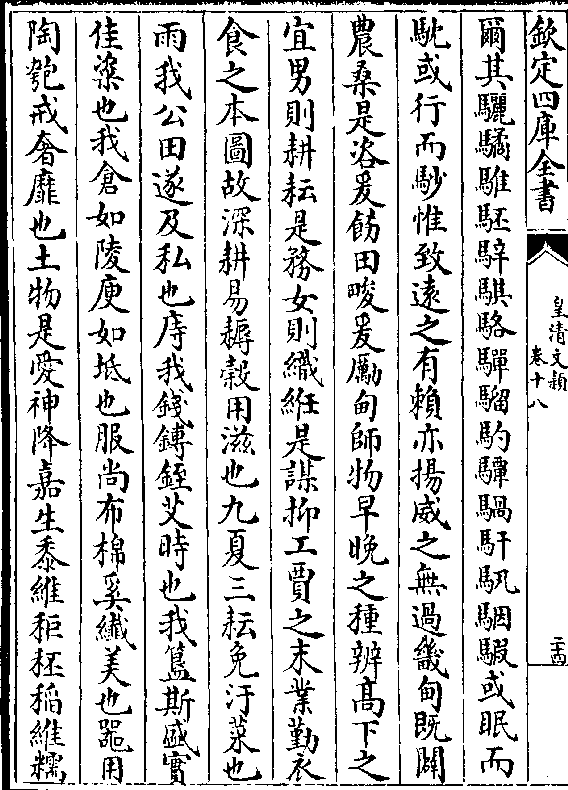 欽定四庫全書
皇清文穎
卷十八
二十四
爾其驪驈騅駓騂騏駱驒騮馰驔騧馯馻駰騢或眠而
馳或行而眇惟致遠之有賴亦揚威之無過畿甸既闢
農桑是咨爰飭田畯爰勵甸師物早晚之種辨高下之
宜男則耕耘是務女則織絍是謀抑工賈之末業勤衣
食之本圖故深耕易耨穀用滋也九夏三耘免汙萊也
雨我公田遂及私也庤我錢鎛銍艾時也我簋斯盛實
佳粢也我倉如陵庾如坻也服尚布棉奚纖美也器用
陶匏戒奢靡也土物是愛神降嘉生黍維秬秠稻維糯